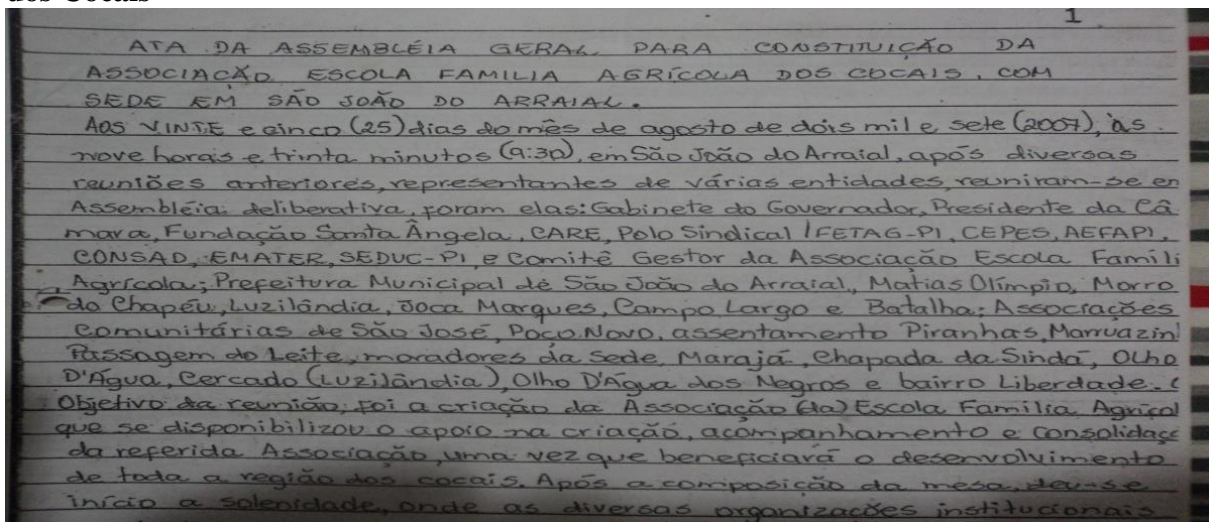 dos Cocais
1
ATA DA ASSEMBLÉIA GERAL PARA CONSTITUIÇÃO DA
ASSOCIAÇÃO ESCOLA FAMILIA AGRÍCOLA DOS COCAIS, COM
SEDE EM SÃO JOÃO DO ARRAIAL.
AOS VINTE e cinco (25) dias do mês de agosto de dois mil e sete (2007), às
nove horas e trinta minutos (9:30), em São João do Arraial, após diversas
reuniões anteriores, representantes de várias entidades, reuniram-se en
Assembléia deliberativa, foram elas: Gabinete do Governador, Presidente da Câ
mara, Fundação Santa Ângela, CARE, Polo Sindical / FETAG-PI, CEPES, AEFAPI,
CONSAD, EMATER, SEDUC-PI, e Comitê Gestor da Associação Escola Famíli
a Agrícola; Prefeitura Municipal de São João do Arraial, Matias Olímpio, Morro
do Chapéu, Luzilândia, Joca Marques, Campo Largo e Batalha; Associações
Comunitárias de São José, Poço Novo, assentamento Piranhas, Marruazin
Passagem do Leite, moradores da Sede, Marajá, Chapada da Sindá, Olho
D'Água, Cercado (Luzilândia), Olho D'Água dos Negros e bairro Liberdade. O
Objetivo da reunião, foi a criação da Associação (da) Escola Família Agrícol
que se disponibilizou o apoio na criação, acompanhamento e consolidaçã
da referida Associação, uma vez que beneficiará o desenvolvimento
de toda a região dos cocais. Após a composição da mesa, deu-se
início a solenidade, onde as diversas organizações institucionais